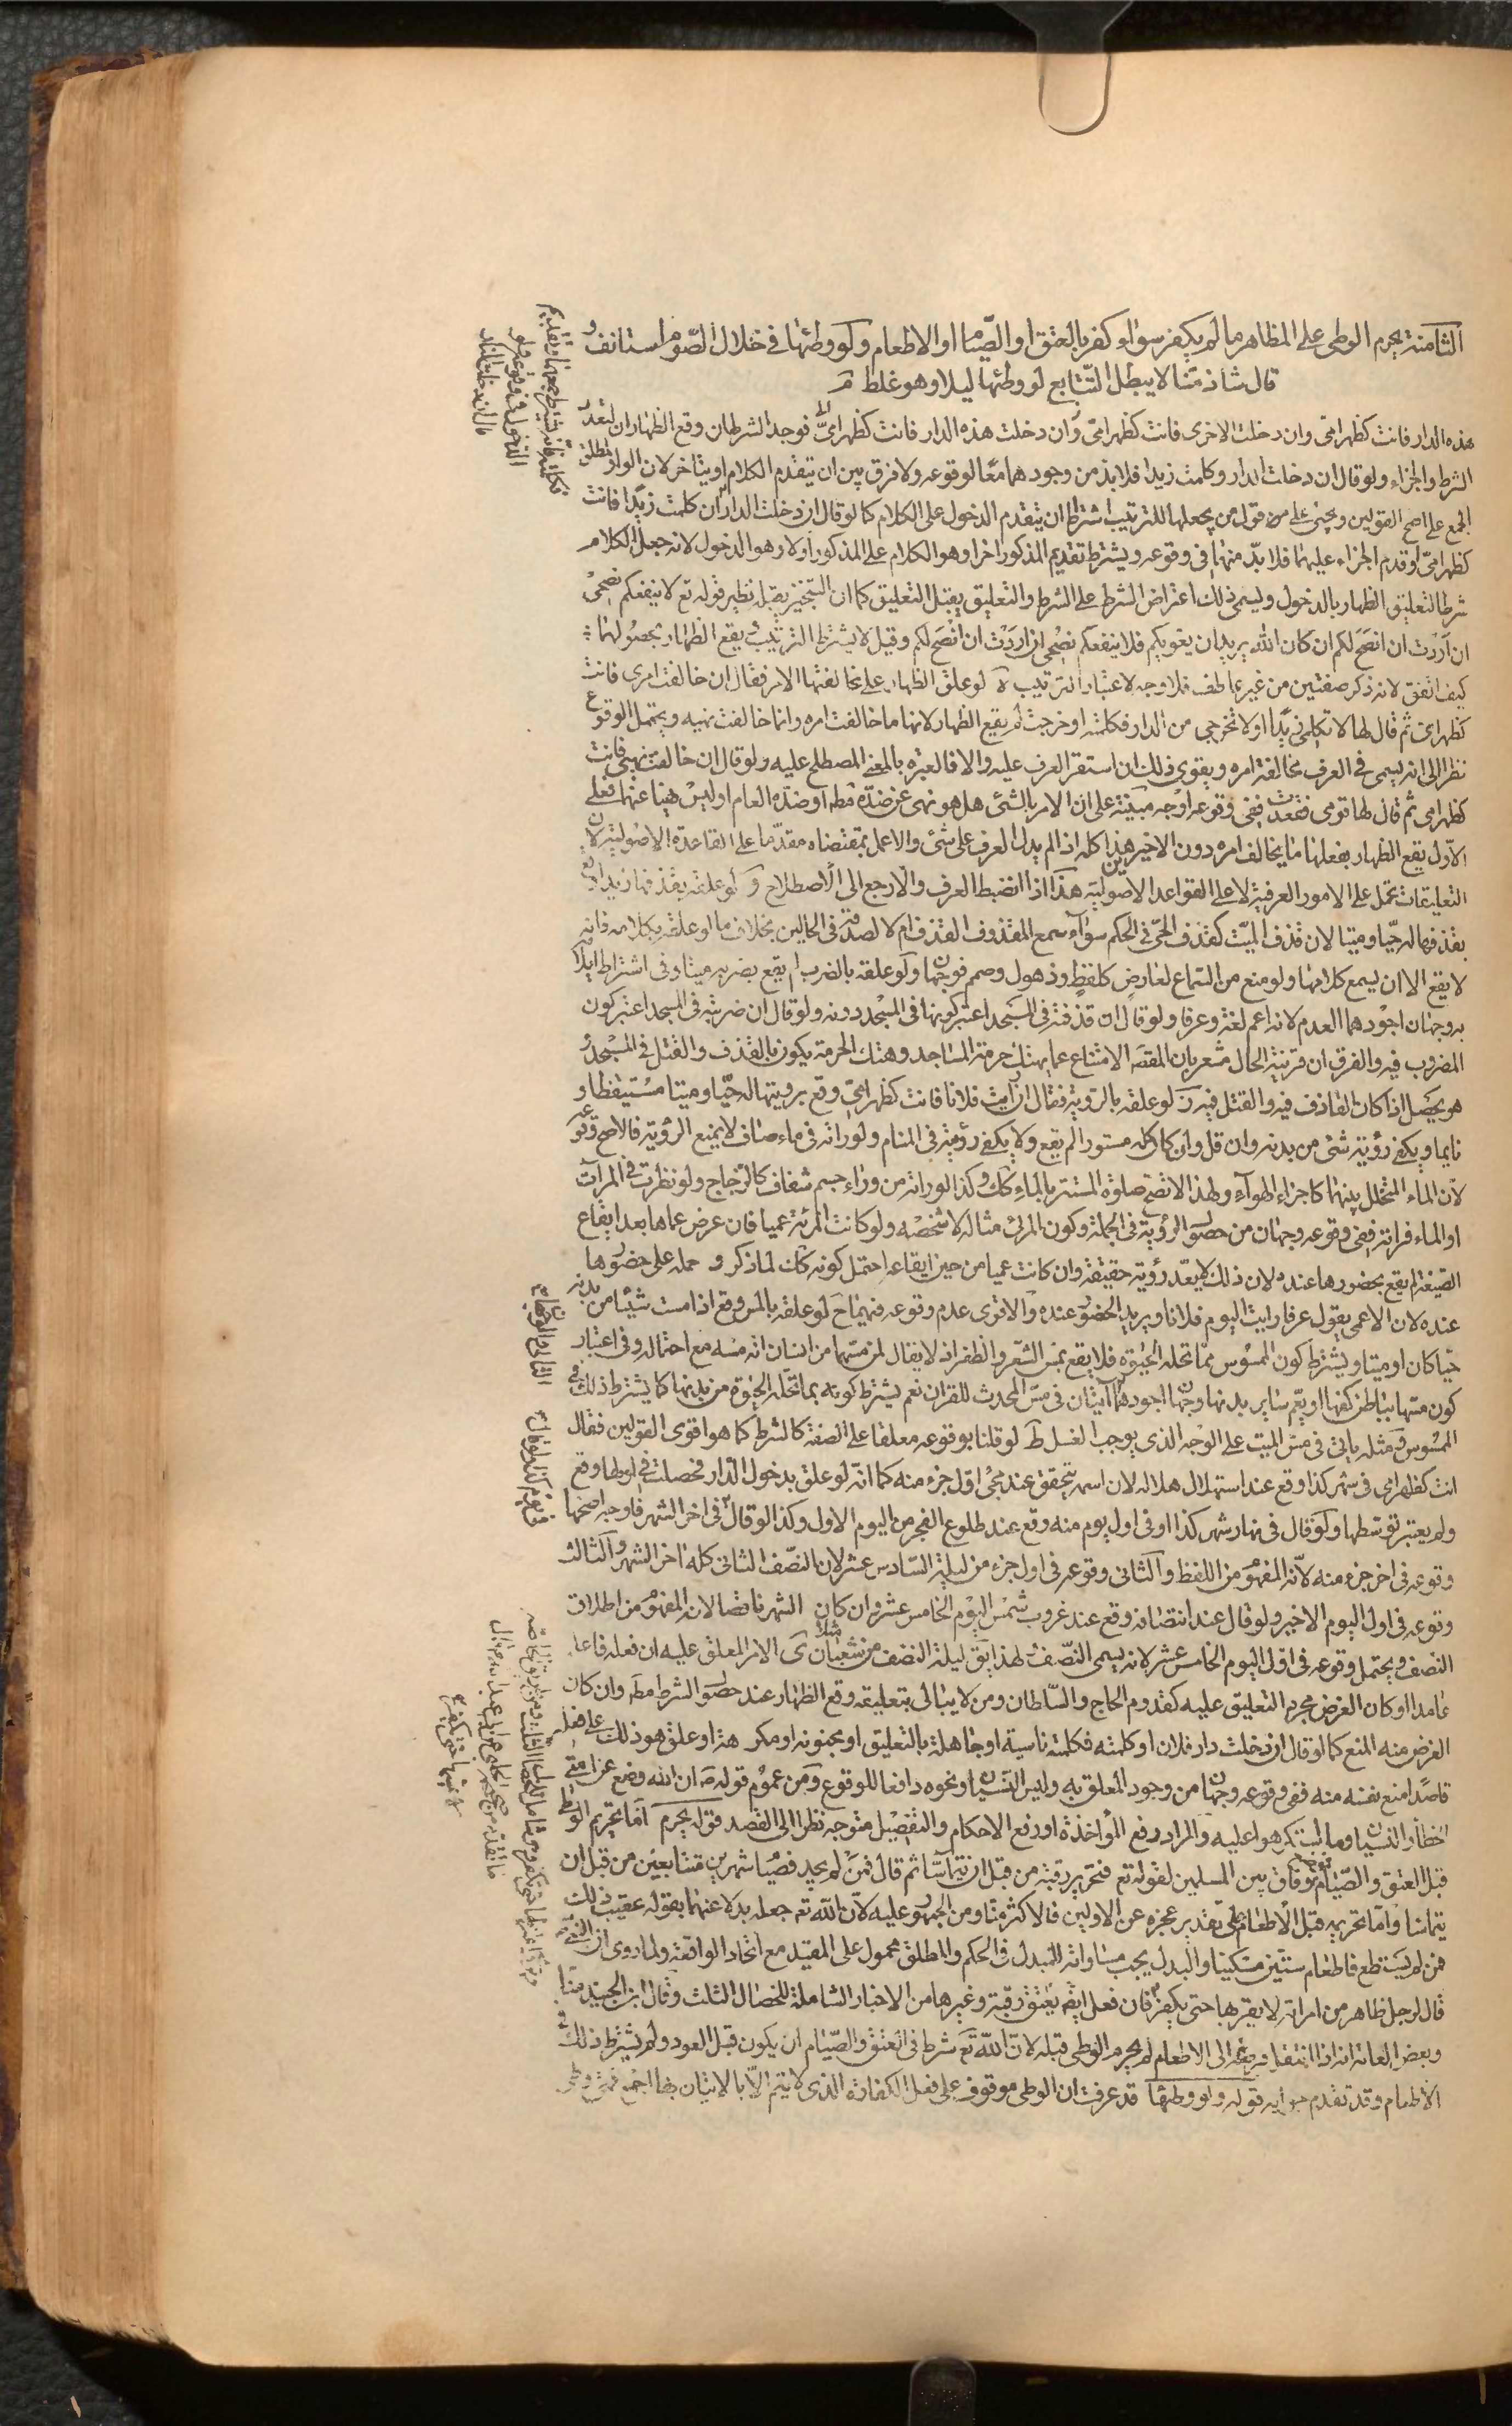 الثامنة يحرم الوطى على المظاهر ما لم يكفر سواء كفر بالعتق او الصّيام او الاطعام ولو وطئها فى خلال الصّوم استانف و
قال شاذ منّا لا يبطل التّتابع لو وطئها ليلا وهو غلط
هذه الدار فانت كظهر امّى وان دخلت الاخرى فانت كظهر امّى وان دخلت هذه الدار فانت كظهر امّى فوجد الشرطان وقع الظهاران لتعدّد
الشرط والجزاء ولو قال ان دخلت الدار وكلمت زيدا فلا بد من وجودهما معًا لوقوعه ولا فرق بين ان يتقدم الكلام او يتاخر لان الواو لمطلق
الجمع على اصح القولين ويجئ على من قول من يجعلها للترتيب اشتراط ان يتقدم الدخول على الكلام كما لو قال ان دخلت الدار ان كلمت زيدًا فانت
كظهر امّى او قدم الجزاء عليهما فلا بدّ منهما فى وقوعه ويشترط تقديم المذكور اخرا وهو الكلام على المذكور اولا وهو الدخول لانه جعل الكلام
شرطا لتعليق الظهار بالدخول ويسمى ذلك اعتراض الشرط على الشرط والتعليق يقبل التعليق كما ان التنجيز يقبله نظير قوله تع لا ينفعكم نصحى
ان اردت ان انصح لكم ان كان الله يريد ان يغويكم فلا ينفعكم نصحى ان اردت ان انصح لكم وقيل لا يشترط الترتيب بل يقع الظهار بحصولهما
كيف اتفق لانه ذكر صفتين من غير عاطف فلا وجه لاعتبار الترتيب ة لو علق الظهار على مخالفتها الامر فقال ان خالفت امرى فانت
كظهر امى ثم قال لها لا تكلمى زيدًا او لا تخرجى من الدار فكلمته او خرجت لم يقع الظهار لانها ما خالفت امره وانما خالفت نهيه ويحتمل الوقوع
نظرا الى انه يسمى فى العرف مخالفة امره ويقوى ذلك ان استقر العرف عليه والا فالعبرة بالمعنى المصطلح عليه ولو قال ان خالفت نهيى فانت
كظهر امى ثم قال لها قومى فقعدت ففى وقوعه اوجه مبنية على ان الامر بالشئ هل هو نهى عن ضدّه مطه او ضدّه العام او ليس نهيا عنهما فعلى
الاول يقع الظهار بفعلها ما يخالف امره دون الاخيرين هذا كله اذا لم يدل العرف على شئ والا عمل بمقتضاه مقدّما على القاعدة الاصولية لان
التعليقات تحمل على الامور العرفية لا على القواعد الاصولية هذا اذا انضبط العرف والا رجع الى الاصطلاح و لو علقه بقذفها زيدا وقع
بقذفها له حيّا وميتا لان قذف الميّت كقذف الحىّ فى الحكم سواء سمع المقذوف القذف ام لا لصدقه فى الحالين بخلاف ما لو علقه بكلامه فانه
لا يقع الا ان يسمع كلامها ولو منع من السّماع لعارضٍ كلغطٍ وذهول وصمم فوجهان ولو علقه بالضرب لم يقع بضربه ميتا وفى اشتراط ايلا
به وجهان اجودهما العدم لانه اعم لغة وعرفا ولو قال ان قذفته فى المسجد اعتبر كونها فى المسجد دونه ولو قال ان ضربته فى المسجد اعتبر كون
المضروب فيه والفرق ان قرينة الحال مشعر بان المقصد الامتناع عما يهتك حرمة المساجد وهتك الحرمة يكون بالقذف والقتل فى المسجد و
هو يحصل اذا كان القاذف فيه والقتل فيه ز لو علقه بالرّوية فقال ان رأيت فلانا فانت كظهر امّى وقع برويتها له حيّا وميتا مستيقظا و
نايما ويكفى رؤية شئ من بدنه وان قل وان كان كله مستورا لم يقع ولا يكفى رؤيته فى المنام ولو راته فى ماء صاف لا يمنع الرؤية فالاصح وقوعه
لان الماء المتخلل بينهما كاجزاء الهواء ولهذا لا تصح صلوة المستتر بالماء كك وكذا لو راته من وراء جسم شفاف كالزجاج ولو نظرت فى المرآت
او الماء فراته ففى وقوعه وجهان من حصول الرؤية فى الجملة وكون المرئى مثاله لا شخصه ولو كانت المرئة عميا فان عرض عماها بعد ايقاع
الصّيغة لم يقع بحضورها عنده لان ذلك لا يعدّ رؤية حقيقة وان كانت عميا من حين ايقاعه احتمل كونه كك لما ذكر و حمله على حضورها
عنده لان الاعمى يقول عرفا رايت اليوم فلانا ويريد الحضور عنده والاقوى عدم وقوعه فيهما ح لو علقه بالمس وقع اذا مست شيئا من بدنه
حيّا كان او ميتا ويشترط كون الممسوس ممّا تحله الحيوة فلا يقع بمس الشّعر والظفر اذ لا يقال لمن مسّهما من انسان انه مسه مع احتماله وفى اعتبار
كون مسّها بباطن كفها او يعّم ساير بدنها وجهان اجودهما الثانى فى مسّ المحدث للقران نعم يشترط كونه بما تحله الحيوة من بدنها كما يشترط ذلك فى
الممسوس ومثله ياتى فى مسّ الميت على الوجه الذى يوجب الغسل ط لو قلنا بوقوعه معلقا على الصفة كالشرط كما هو اقوى القولين فقال
انت كظهر امى فى شهر كذا وقع عند استهلال هلاله لان اسمه يتحقق عند مجئ اوّل جزء منه كما انّه لو علق بدخول الدار فحصلت فى اولها وقع
ولم يعتبر توسطها ولو قال فى نهار شهر كذا او فى اول يوم منه وقع عند طلوع الفجر من اليوم الاول وكذا لو قال فى اخر الشهر فاوجه اصحّها
وقوعه فى اخر جزء منه لانّه المفهوم من اللفظ والثانى وقوعه فى اول جزء من ليلة السّادس عشر لان النصّف الثانى كله اخر الشهر والثالث
وقوعه فى اول اليوم الاخير ولو قال عند انتصافه وقع عند غروب شمس اليوم الخامس عشر وان كان الشهر ناقصا لانه المفهوم من اطلاق
النصف ويحتمل وقوعه فى اوّل اليوم الخامس عشر لانه يسمى النصّف لهذا يقق ليلة النصف من شعبان مثلا ى الامر المعلق عليه ان فعله فاعل
عامدا او كان الغرض مجرد التعليق عليه كقدوم الحاج والسّلطان ومن لا يبالى بتعليقه وقع الظهار عند حصول الشرط مطه وان كان
الغرض منه المنع كما لو قال ان دخلت دار فلان او كلمته فكلمته ناسية او جاهلة بالتعليق او مجنونة او مكرهة او علق هو ذلك على فعله
قاصدًا منع نفسه منه ففى وقوعه وجهان من وجود المعلق به وليس النسيان ونحوه دافعا للوقوع ومن عموم قوله ص ان الله وضع عن امتى
الخطأ والنسيان وما استكرهوا عليه والمراد رفع المؤاخذة او رفع الاحكام والتفصيل متوجه نظرا الى القصد قوله يحرم امّا تحريم الوطى
قبل العتق والصّيام فموضع وفاق بين المسلمين لقوله تع فتحرير رقبة من قبل ان يتماسّا ثم قال فمن لم يجد فصيام شهرين متتابعين من قبل ان
يتماسّا وامّا تحريمه قبل الاطعام على تقدير عجزه عن الاولين فالاكثر منّا ومن الجمهور عليه لانّ الله تع جعله بدلا عنهما بقوله عقيب ذلك
فمن لم يستطع فاطعام ستّين مسكينا والبدل يجب مساواته للمبدل فى الحكم والمطلق محمول على المقيد مع اتحاد الواقعة ولما روى ان النبى ص
قال لرجل ظاهر من امراته لا يقربها حتى يكفر فان فعل ايضه يعتق رقبة وغيرها من الاخبار الشاملة للخصال الثلث وقال ابن الجنيد منّا
وبعض العامة انه اذا انتقل فرضه الى الاطعام لم يحرم الوطى قبله لانّ الله تع شرط فى العتق والصّيام ان يكون قبل العود ولم يشترط ذلك فى
الاطعام وقد تقدم جوابه قوله ولو وطئها قد عرفت ان الوطى موقوف على فعل الكفارة الذى لا يتم الاّ بالاتيان بها اجمع فمتى وطى